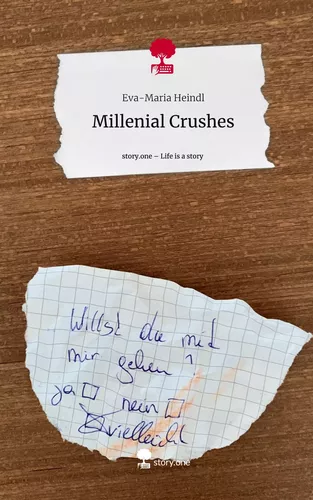 Eva-Maria Heindl
Millenial Crushes
story.one – Life is a story
Willst du mit
mir gehen?
ja □ nein □
☒ vielleicht
story.one